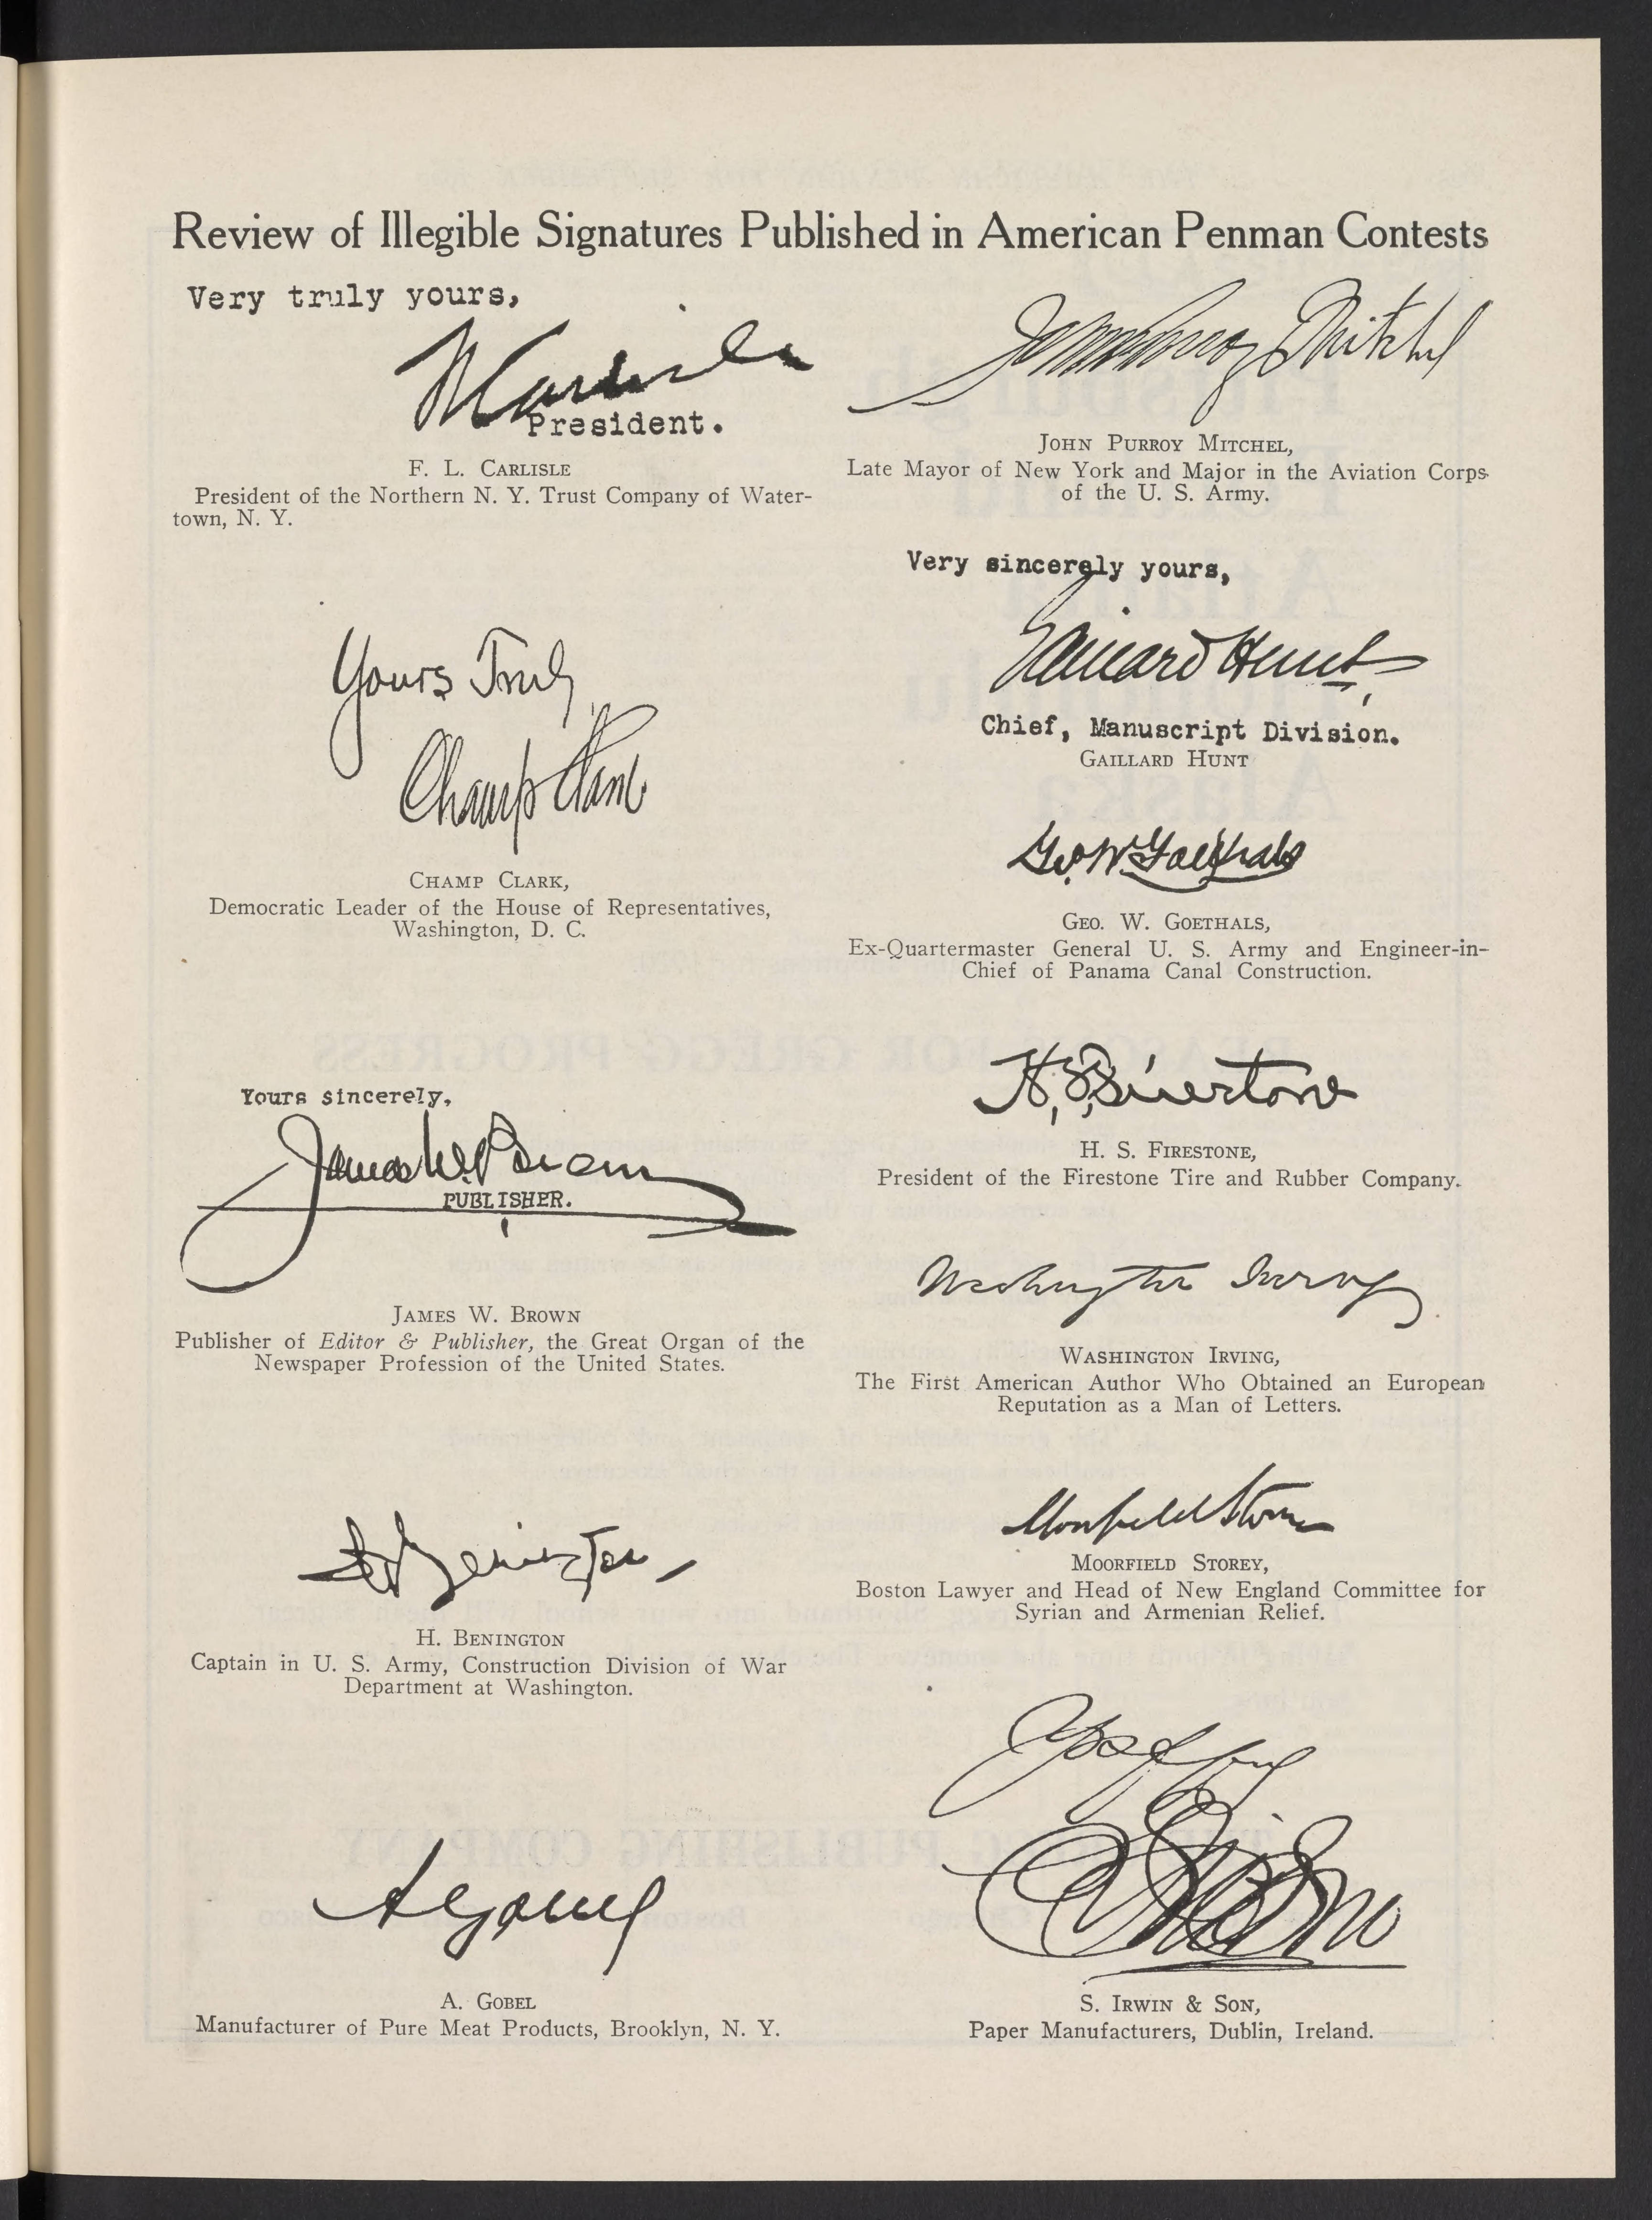 Review of Illegible Signatures Published in American Penman Contests
Very truly yours,
President.
F. L. CARLISLE
President of the Northern N. Y. Trust Company of Water-
town, N. Y.
Yours Truly
Champ Clark
CHAMP CLARK,
Democratic Leader of the House of Representatives,
Washington, D. C.
Yours sincerely,
James W. Brown
PUBLISHER.
JAMES W. BROWN
Publisher of Editor & Publisher, the Great Organ of the
Newspaper Profession of the United States.
H. Benington
H. BENINGTON
Captain in U. S. Army, Construction Division of War
Department at Washington.
A Gobel
A. GOBEL
Manufacturer of Pure Meat Products, Brooklyn, N. Y.
John Purroy Mitchel
JOHN PURROY MITCHEL,
Late Mayor of New York and Major in the Aviation Corps
of the U. S. Army.
Very sincerely yours,
Gaillard Hunt
Chief, Manuscript Division.
GAILLARD HUNT
Geo. W. Goethals
GEO. W. GOETHALS,
Ex-Quartermaster General U. S. Army and Engineer-in-
Chief of Panama Canal Construction.
H. S. Firestone
H. S. FIRESTONE,
President of the Firestone Tire and Rubber Company.
Washington Irving
WASHINGTON IRVING,
The First American Author Who Obtained an European
Reputation as a Man of Letters.
Moorfield Storey
MOORFIELD STOREY,
Boston Lawyer and Head of New England Committee for
Syrian and Armenian Relief.
S. IRWIN & SON,
Paper Manufacturers, Dublin, Ireland.